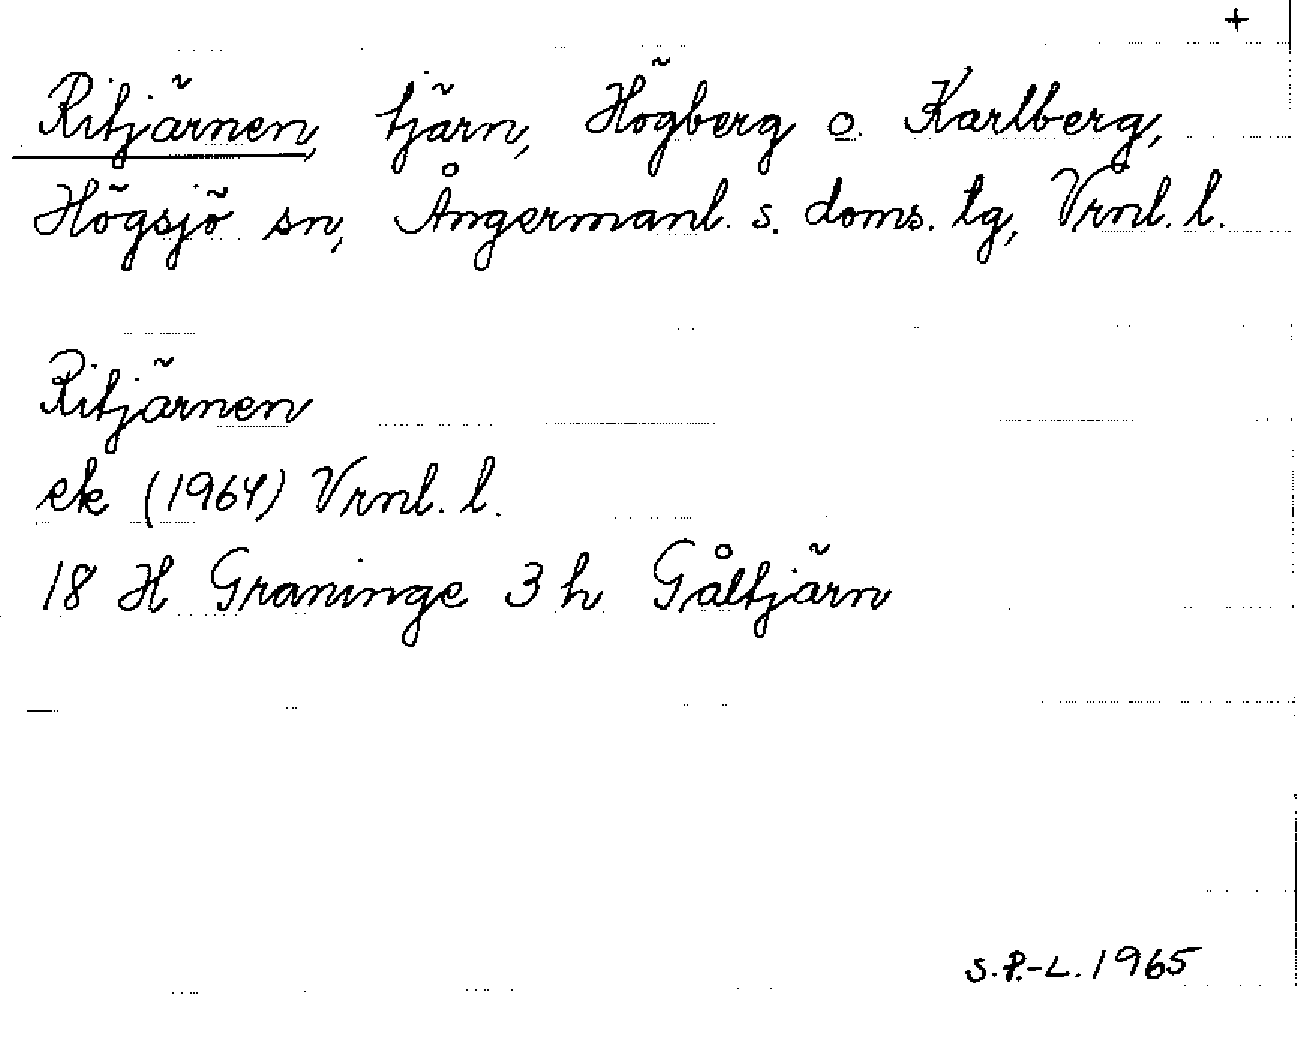 +
Ritjärnen, tjärn, Högberg o. Karlberg,
Högsjö sn, Ångermanl. s. doms. tg, Vrnl. l.
Ritjärnen
ek (1964) Vrnl. l.
18 H Graninge 3 h Gåltjärn
S.P.-L. 1965